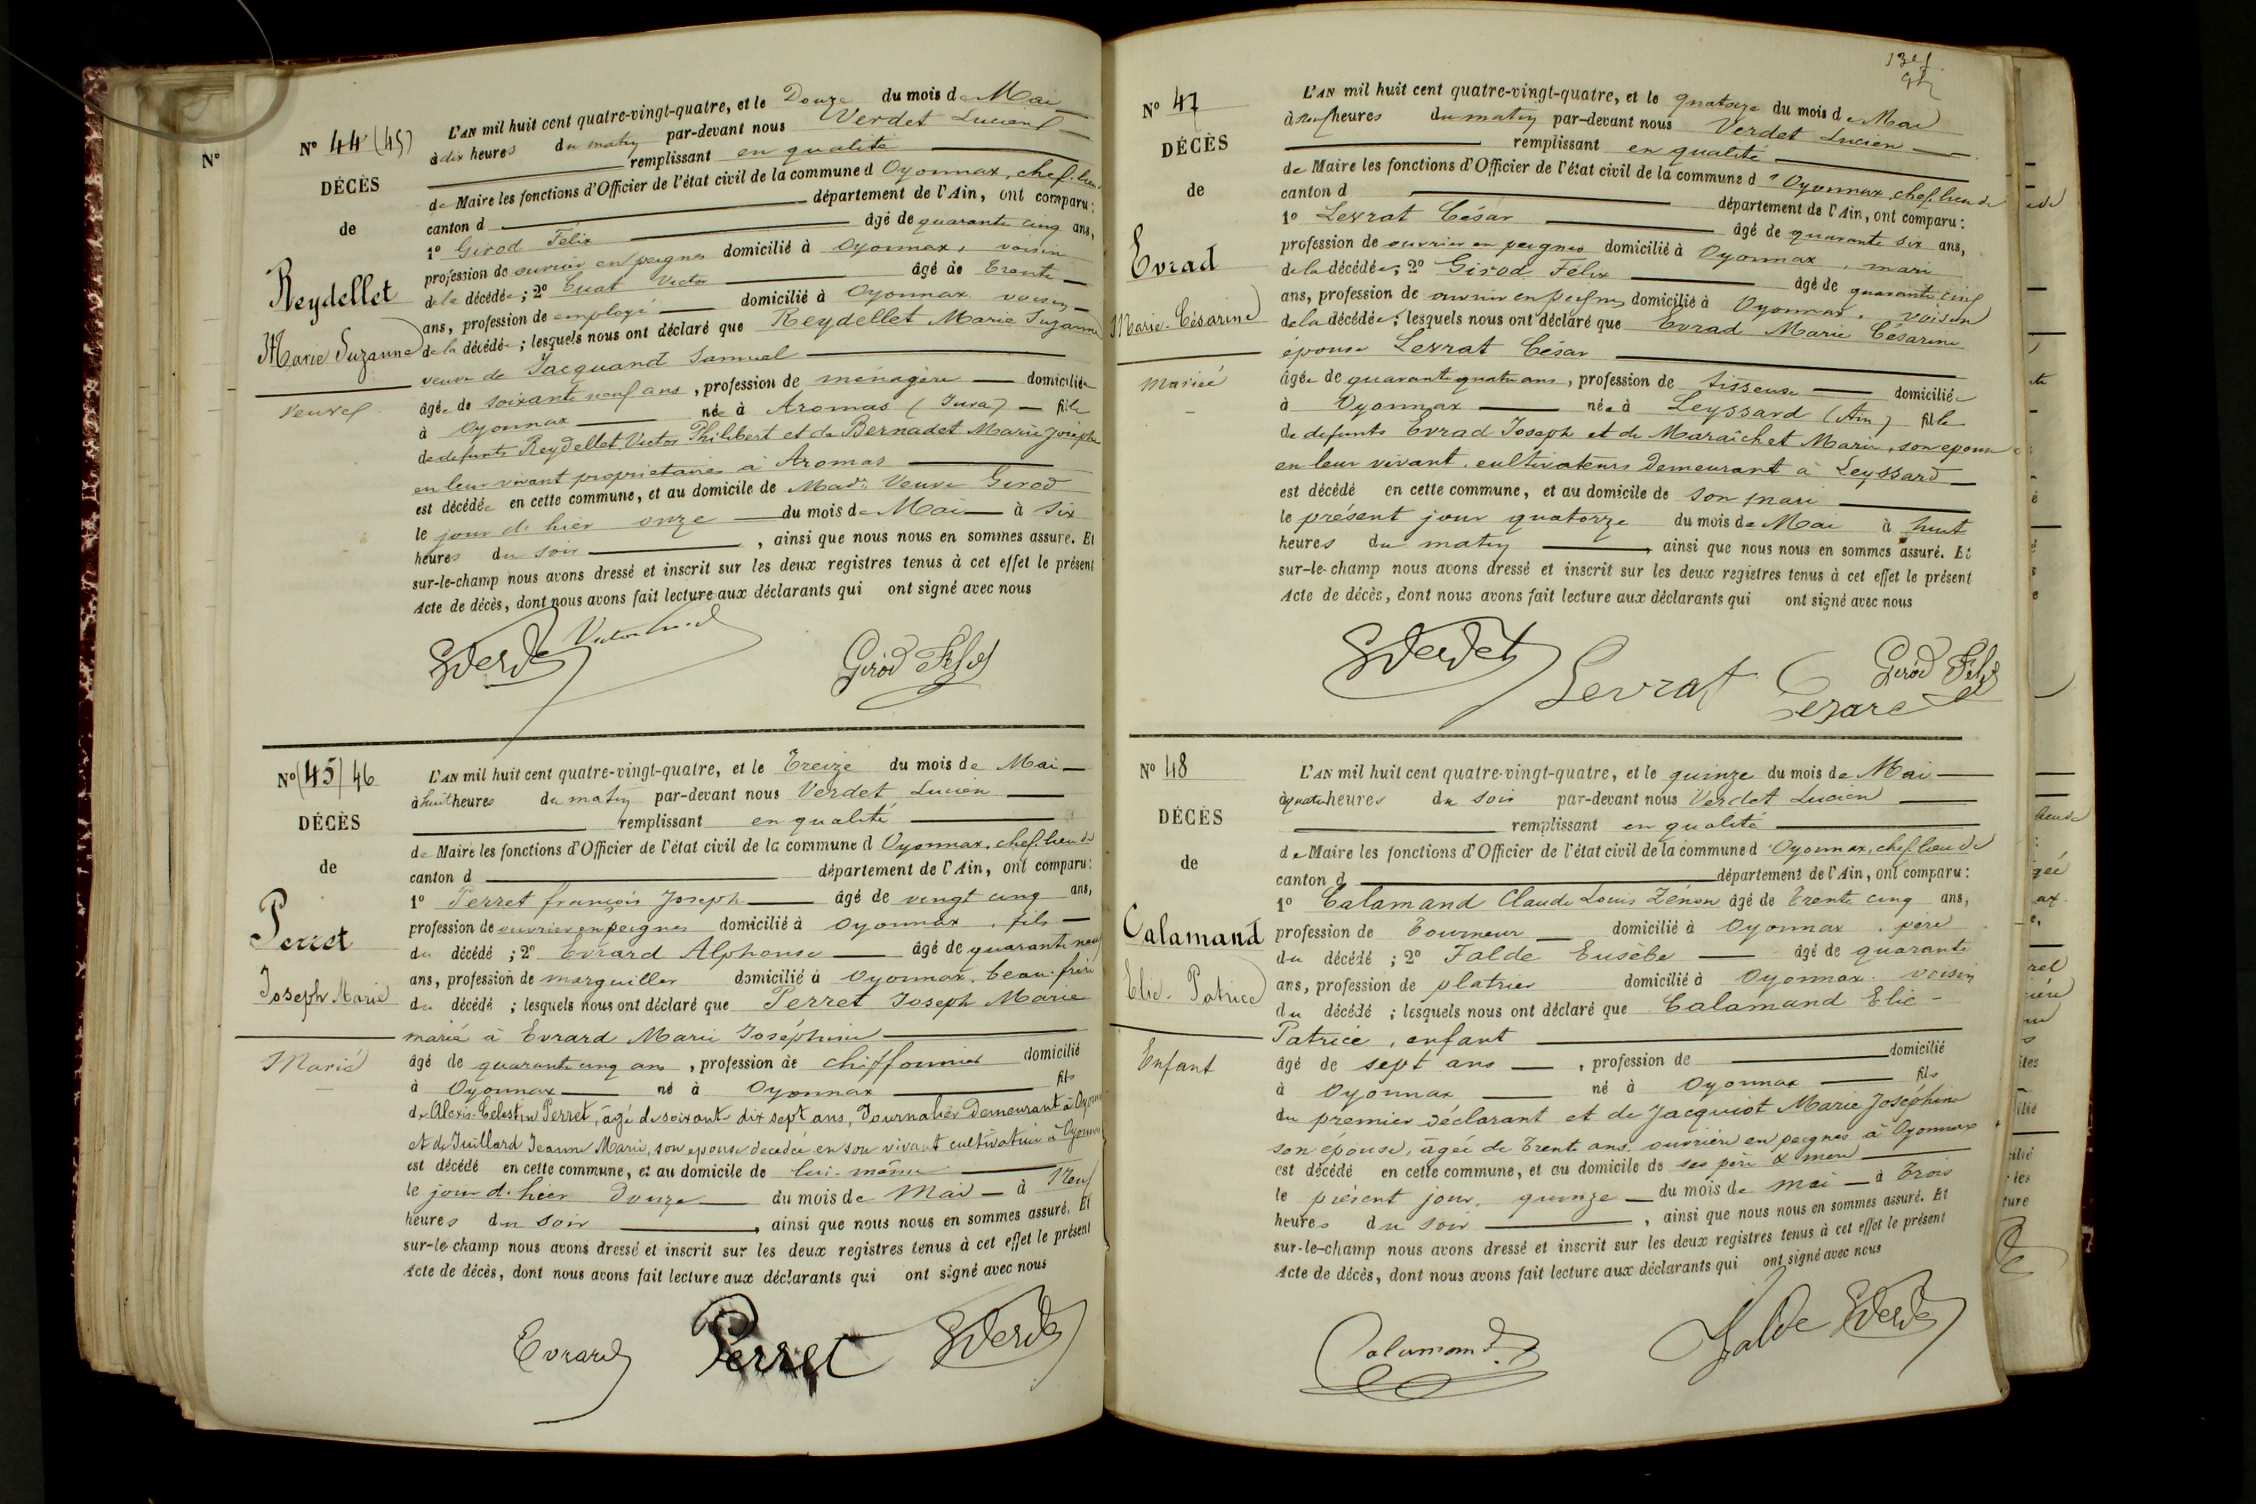 N°
N° 44 (45)
DÉCÈS
de
Reydellet
Marie Suzanne
Veuve
L'AN mil huit cent quatre-vingt-quatre, et le Douze du mois de Mai
à dix heures du matin par-devant nous Verdet Lucien
remplissant en qualité
de Maire les fonctions d'Officier de l'état civil de la commune d Oyonnax, chef-lieu
canton d département de l'Ain, ont comparu:
1° Girod Félix âgé de quarante cinq ans,
profession de ouvrier en peignes domicilié à Oyonnax, voisin
de la décédée; 2° Victor âgé de Trente
ans, profession de employé domicilié à Oyonnax voisin
de la décédée; lesquels nous ont déclaré que Reydellet Marie Suzanne
veuve de Jacquand Samuel
âgée de soixante neuf ans, profession de ménagère domiciliée
à Oyonnax née à Aromas (Jura) fille
de defunts Reydellet Victor Philibert et de Bernadet Marie Josephe
en leur vivant proprietaires à Aromas
est décédée en cette commune, et au domicile de Made Veuve Girod
le jour de hier onze du mois de Mai à Six
heures du soir, ainsi que nous nous en sommes assuré. Et
sur-le-champ nous avons dressé et inscrit sur les deux registres tenus à cet effet le présent
Acte de décès, dont nous avons fait lecture aux déclarants qui ont signé avec nous
Verdet Victor Girod Félix
N° (45) 46
DÉCÈS
de
Perret
Joseph Marie
Marié
L'AN mil huit cent quatre-vingt-quatre, et le Treize du mois de Mai
à huit heures du matin par-devant nous Verdet Lucien
remplissant en qualité
de Maire les fonctions d'Officier de l'état civil de la commune d Oyonnax, chef-lieu de
canton d département de l'Ain, ont comparu:
1° Perret françois Joseph âgé de vingt cinq ans,
profession de ouvrier en peignes domicilié à Oyonnax, fils
du décédé; 2° Evrard Alphonse âgé de quarante neuf
ans, profession de marguiller domicilié à Oyonnax, beau-frère
du décédé; lesquels nous ont déclaré que Perret Joseph Marie
marié à Evrard Marie Joséphine
âgé de quarante cinq ans, profession de chiffonnier domicilié
à Oyonnax né à Oyonnax fils
de Alexis Celestin Perret, âgé de soixante dix sept ans, Journalier demeurant à Oyonnax
et de Juillard Jeanne Marie, son epouse decedée en son vivant cultivatrice à Oyonnax
est décédé en cette commune, et au domicile de lui-même
le jour d'hier douze du mois de Mai à Neuf
heures du soir, ainsi que nous nous en sommes assuré. Et
sur-le-champ nous avons dressé et inscrit sur les deux registres tenus à cet effet le présent
Acte de décès, dont nous avons fait lecture aux déclarants qui ont signé avec nous
Evrard Perret Verdet
N° 47
DÉCÈS
de
Evrad
Marie-Césarine
Mariée
L'AN mil huit cent quatre-vingt-quatre, et le quatorze du mois de Mai
à neuf heures du matin par-devant nous Verdet Lucien
remplissant en qualité
de Maire les fonctions d'Officier de l'état civil de la commune d'Oyonnax chef-lieu de
canton d département de l'Ain, ont comparu:
1° Levrat César âgé de quarante six ans,
profession de ouvrier en peignes domicilié à Oyonnax, mari
de la décédée; 2° Girod Félix âgé de quarante cinq
ans, profession de ouvrier en peignes domicilié à Oyonnax, voisin
de la décédée; lesquels nous ont déclaré que Evrad Marie Césarine
épouse Levrat César
âgée de quarante quatre ans, profession de tisseuse domiciliée
à Oyonnax née à Leyssard (Ain) fille
de defunts Evrad Joseph et de Maraîchet Marie, son epouse
en leur vivant cultivateurs demeurant à Leyssard
est décédé en cette commune, et au domicile de son mari
le présent jour quatorze du mois de Mai à huit
heures du matin, ainsi que nous nous en sommes assuré. Et
sur-le-champ nous avons dressé et inscrit sur les deux registres tenus à cet effet le présent
Acte de décès, dont nous avons fait lecture aux déclarants qui ont signé avec nous
Verdet Levrat Cezare Girod Félix
N° 48
DÉCÈS
de
Calamand
Elie-Patrice
Enfant
L'AN mil huit cent quatre-vingt-quatre, et le quinze du mois de Mai
à quatre heures du soir par-devant nous Verdet Lucien
remplissant en qualité
de Maire les fonctions d'Officier de l'état civil de la commune d'Oyonnax, chef-lieu de
canton d département de l'Ain, ont comparu:
1° Calamand Claude Louis Zénon âgé de Trente cinq ans,
profession de Tourneur domicilié à Oyonnax, père
du décédé; 2° Falde Eusèbe âgé de quarante
ans, profession de platrier domicilié à Oyonnax, voisin
du décédé; lesquels nous ont déclaré que Calamand Elie-
Patrice, enfant
âgé de sept ans, profession de domicilié
à Oyonnax né à Oyonnax fils
du premier déclarant et de Jacquiot Marie Joséphine
son épouse, âgée de Trente ans, ouvrière en peignes à Oyonnax
est décédé en cette commune, et au domicile de ses père & mère
le présent jour quinze du mois de mai à Trois
heures du soir, ainsi que nous nous en sommes assuré. Et
sur-le-champ nous avons dressé et inscrit sur les deux registres tenus à cet effet le présent
Acte de décès, dont nous avons fait lecture aux déclarants qui ont signé avec nous
Calamand Falde Verdet